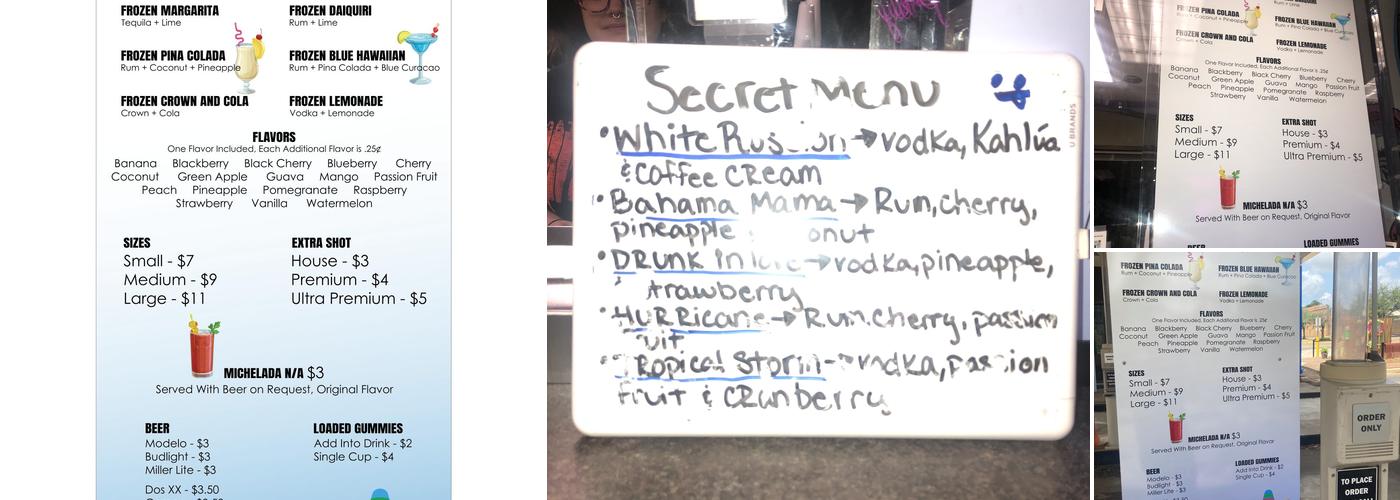 FROZEN MARGARITA
Tequila + Lime
FROZEN DAIQUIRI
Rum + Lime
FROZEN PINA COLADA
Rum + Coconut + Pineapple
FROZEN BLUE HAWAIIAN
Rum + Pina Colada + Blue Curacao
FROZEN CROWN AND COLA
Crown + Cola
FROZEN LEMONADE
Vodka + Lemonade
FLAVORS
One Flavor Included, Each Additional Flavor is .25¢
Banana Blackberry Black Cherry Blueberry Cherry
Coconut Green Apple Guava Mango Passion Fruit
Peach Pineapple Pomegranate Raspberry
Strawberry Vanilla Watermelon
SIZES
Small - $7
Medium - $9
Large - $11
EXTRA SHOT
House - $3
Premium - $4
Ultra Premium - $5
MICHELADA N/A $3
Served With Beer on Request, Original Flavor
BEER
Modelo - $3
Budlight - $3
Miller Lite - $3
Dos XX - $3.50
LOADED GUMMIES
Add Into Drink - $2
Single Cup - $4
Secret Menu
U BRANDS
•White Rus on → vodka, Kahlúa
& Coffee CReam
•Bahama Mama → Rum, cherry,
pineapple onut
•DRUNK in love → vodka, pineapple,
trawberry
•HuRRicane → Rum, cherry, passion
uit
•Tropical Storm → vodka, passion
fruit & CRanberry
FROZEN PINA COLADA
Rum + Coconut + Pineapple
Rum + Lime
FROZEN BLUE HAWAIIAN
Rum + Pina Colada + Blue Curacao
FROZEN CROWN AND COLA
Crown + Cola
FROZEN LEMONADE
Vodka + Lemonade
FLAVORS
One Flavor Included, Each Additional Flavor is .25¢
Banana Blackberry Black Cherry Blueberry Cherry
Coconut Green Apple Guava Mango Passion Fruit
Peach Pineapple Pomegranate Raspberry
Strawberry Vanilla Watermelon
SIZES
Small - $7
Medium - $9
Large - $11
EXTRA SHOT
House - $3
Premium - $4
Ultra Premium - $5
MICHELADA N/A $3
Served With Beer on Request, Original Flavor
BEER
LOADED GUMMIES
FROZEN PINA COLADA
Rum + Coconut + Pineapple
FROZEN BLUE HAWAIIAN
Rum + Pina Colada + Blue Curacao
FROZEN CROWN AND COLA
Crown + Cola
FROZEN LEMONADE
Vodka + Lemonade
FLAVORS
One Flavor Included, Each Additional Flavor is .25¢
Banana Blackberry Black Cherry Blueberry Cherry
Coconut Green Apple Guava Mango Passion Fruit
Peach Pineapple Pomegranate Raspberry
Strawberry Vanilla Watermelon
SIZES
Small - $7
Medium - $9
Large - $11
EXTRA SHOT
House - $3
Premium - $4
Ultra Premium - $5
MICHELADA N/A $3
Served With Beer on Request, Original Flavor
BEER
Modelo - $3
Budlight - $3
Miller Lite - $3
Dos XX - $3.50
LOADED GUMMIES
Add Into Drink - $2
Single Cup - $4
ORDER
ONLY
TO PLACE
ORDER